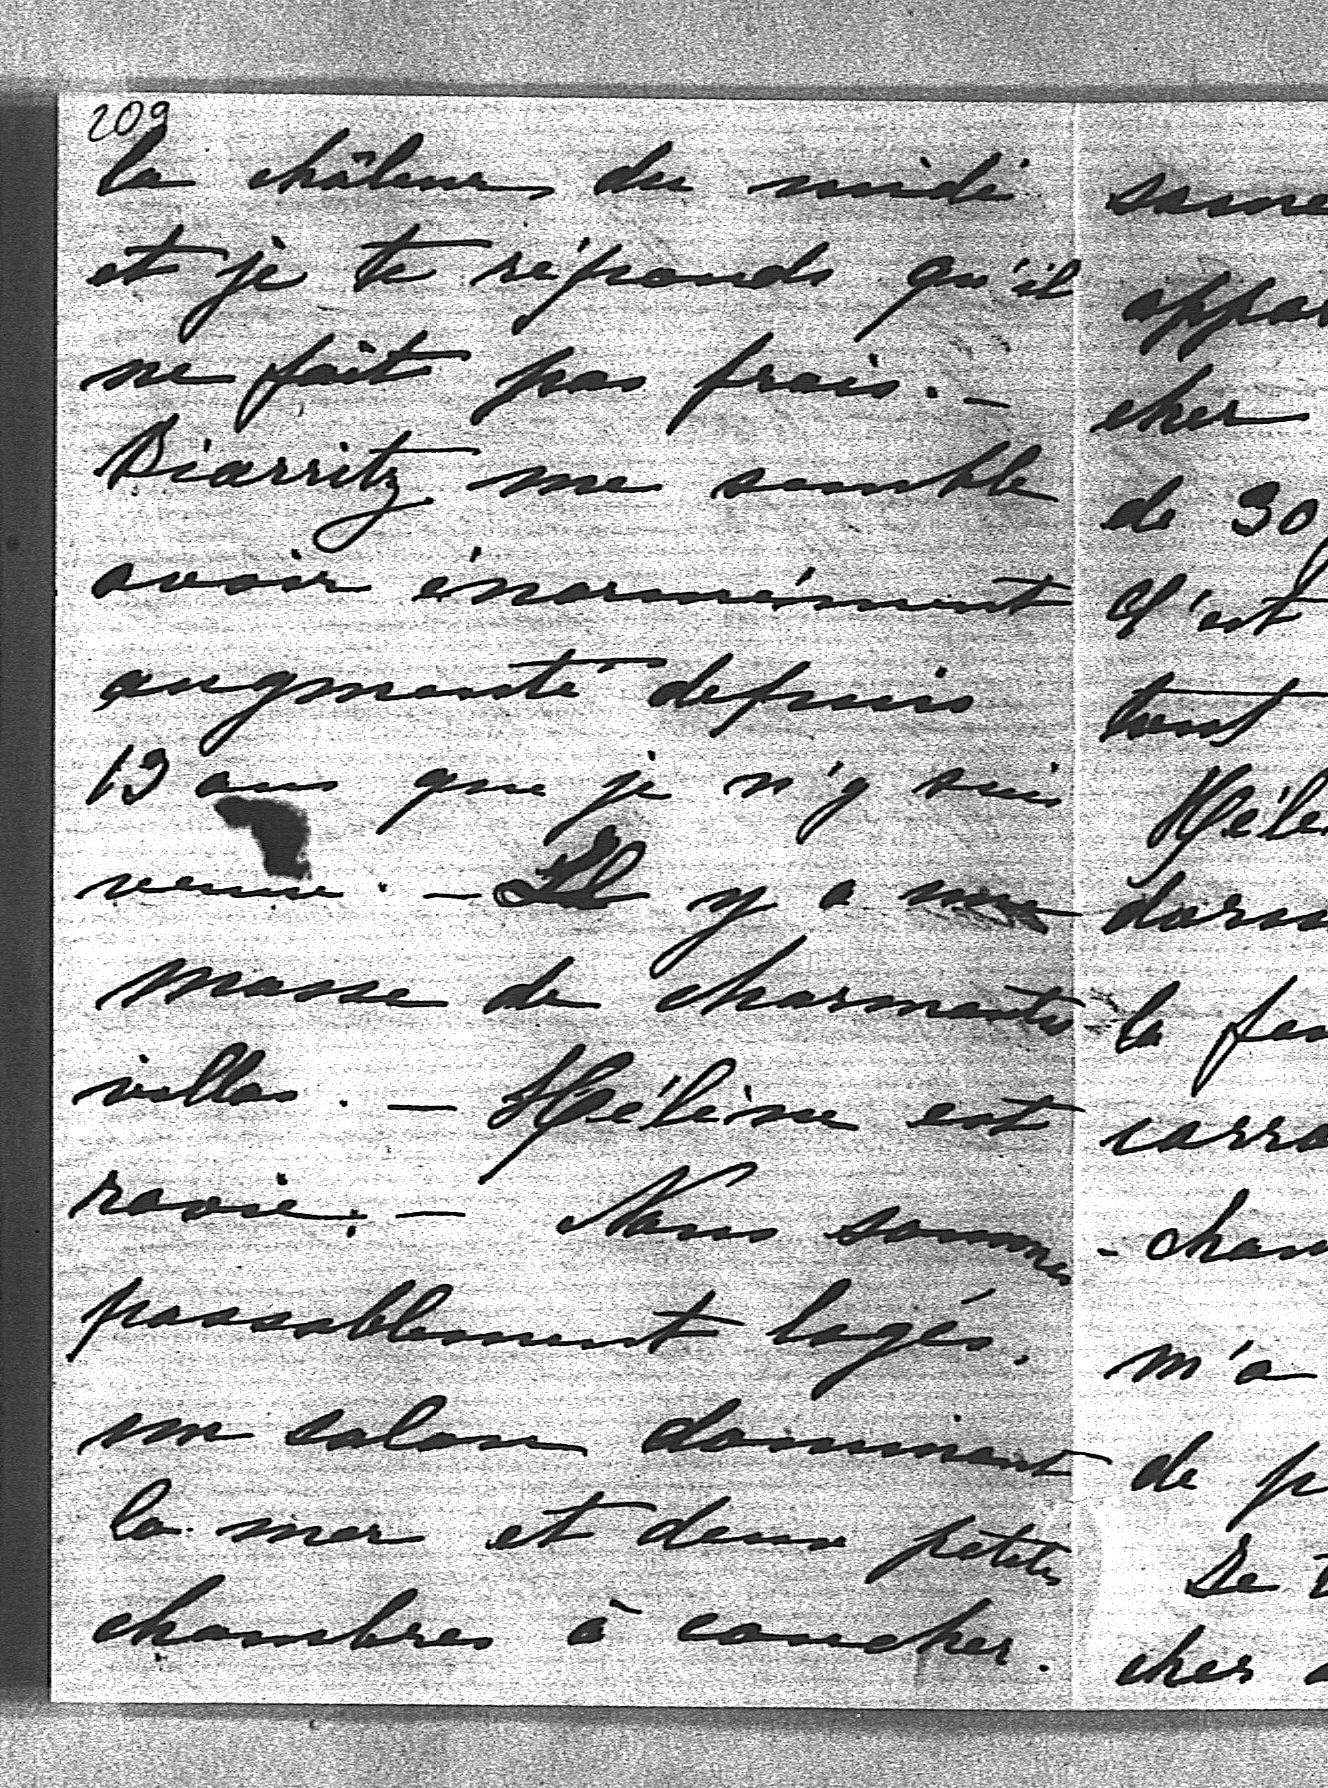 209
la châleur du midi
et je te réponds qu'il
ne fait pas frais. –
Biarritz me semble
avoir énormément
augmenté depuis
13 ans que je n'y suis
venue. – Il y a une
masse de charmantes
villas. – Hélène est
ravie. – Nous sommes
passablement logés.
un salon dominant
la mer et deux petites
chambres à coucher.
appar
cher
de 30
C'est
tout
Hélè
la fen
carra
- cham
m'a
de p
Le
cher